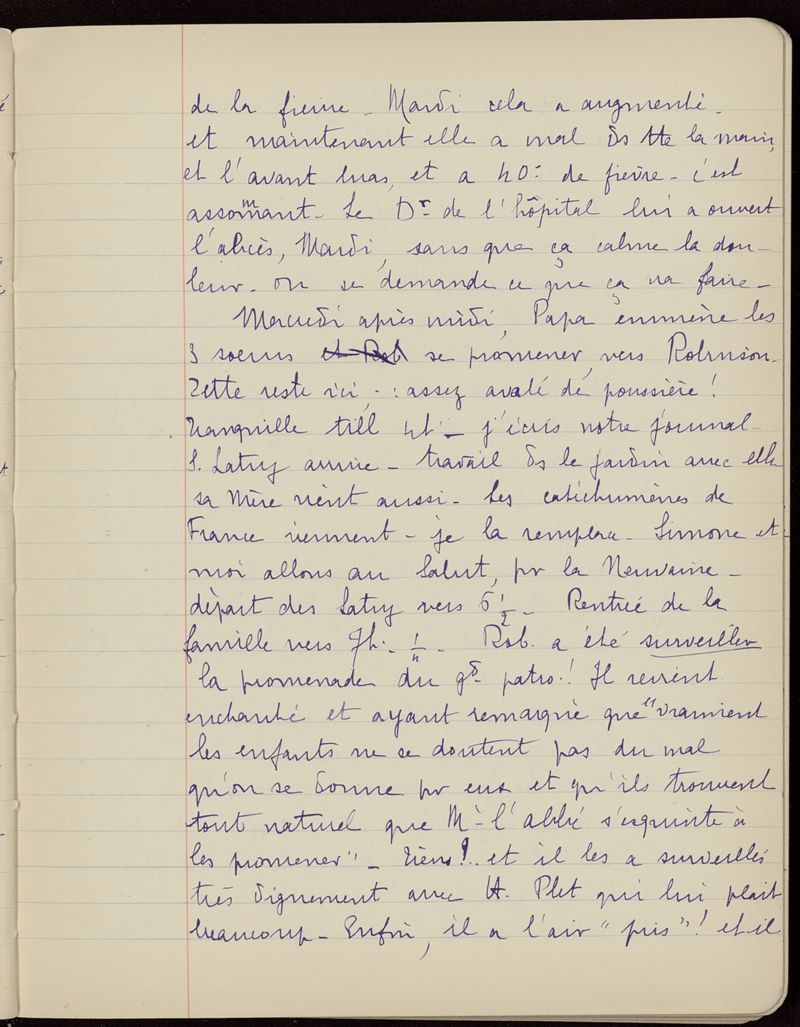 de la fièvre - Mardi cela a augmenté -
et maintenant elle a mal ds tte la main,
et l'avant bras, et a 40° de fièvre - c'est
assommant - Le Dr de l'hôpital lui a ouvert
l'abcès, Mardi, sans que ça calme la dou-
leur - on se demande ce que ça va faire -
Mercredi après midi, Papa emmène les
3 soeurs et Rob se promener, vers Robinson -
Zette reste ici, - : assez avalé de poussière !
Tranquille till 4h - j'écris notre journal -
S. Latry arrive - travail ds le jardin avec elle
sa Mère vient aussi - Les catéchumènes de
France viennent - je la remplace - Simone et
moi allons au Salut, pr la Neuvaine -
départ des Latry vers 6 1/2 - Rentrée de la
famille vers 7h - 1/4 - Rob. a été surveiller
la promenade du gd patro ! Il revient
enchanté et ayant remarqué que "vraiment
les enfants ne se doutent pas du mal
qu'on se donne pr eux et qu'ils trouvent
tout naturel que Mr l'abbé s'esquinte à
les promener" - Tiens !.. et il les a surveillés
très dignement avec H. Plet qui lui plait
beaucoup - Enfin, il a l'air "pris" ! et il